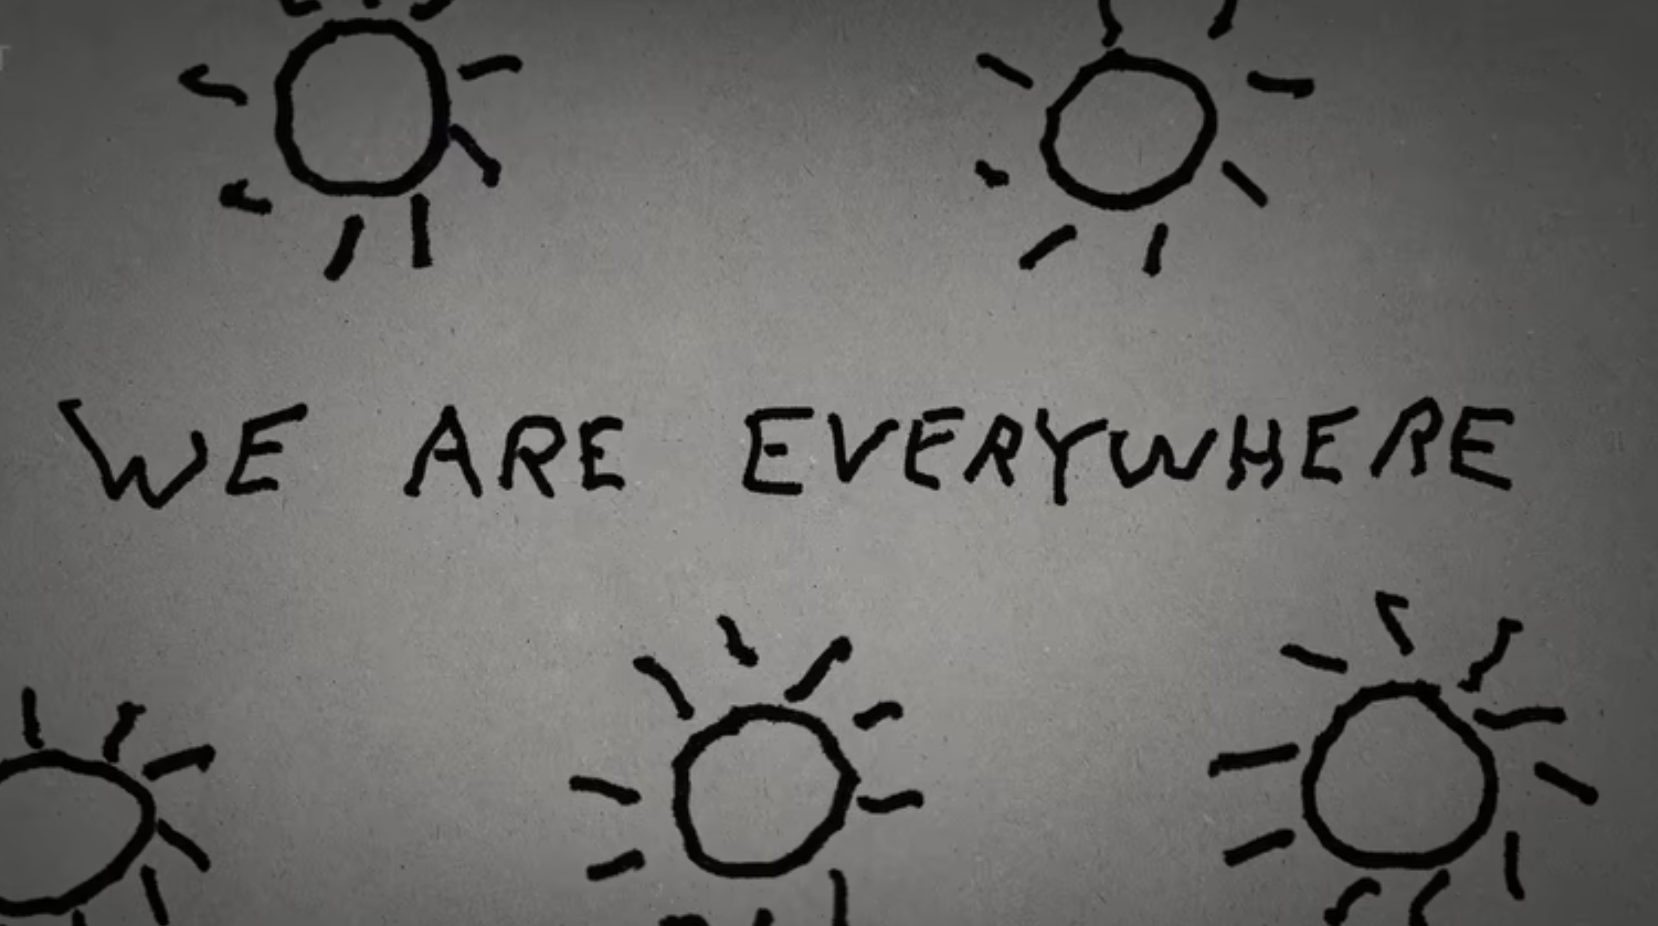 WE ARE EVERYWHERE